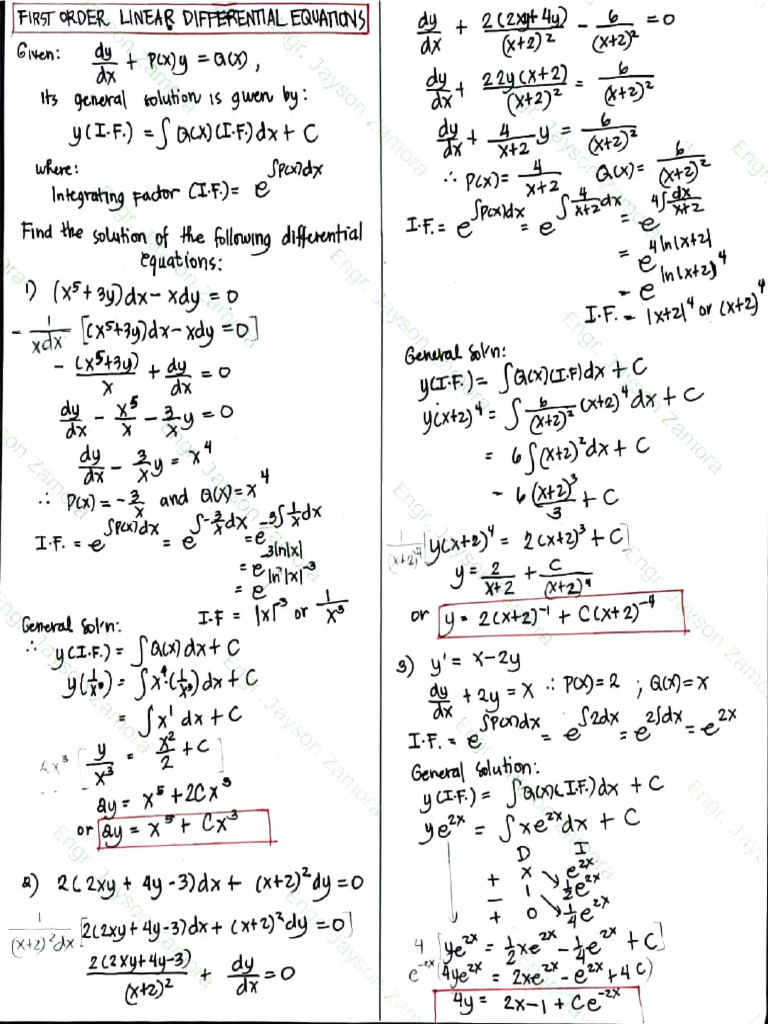 FIRST ORDER LINEAR DIFFERENTIAL EQUATIONS
Given: dy/dx + P(x)y = Q(x),
Its general solution is given by:
y(I.F.) = ∫Q(x)(I.F.)dx + C
where:
Integrating Factor (I.F.) = e^∫P(x)dx
Find the solution of the following differential
equations:
1) (x^5 + 3y)dx - xdy = 0
- 1/xdx [(x^5+3y)dx - xdy = 0]
- (x^5+3y)/x + dy/dx = 0
dy/dx - x^5/x - 3/x y = 0
dy/dx - 3/x y = x^4
∴ P(x) = -3/x and Q(x) = x^4
I.F. = e^∫P(x)dx = e^∫-3/x dx = e^-3∫1/x dx
= e^-3ln|x|
= e^ln|x|^-3
I.F = |x|^-3 or 1/x^3
General sol'n:
∴ y(I.F.) = ∫Q(x)dx + C
y(1/x^3) = ∫x^4·(1/x^3)dx + C
= ∫x^1 dx + C
2x^3 [y/x^3 = x^2/2 + C]
2y = x^5 + 2Cx^3
or 2y = x^5 + Cx^3
2) 2(2xy + 4y - 3)dx + (x+2)^2 dy = 0
1/(x+2)^2dx [2(2xy + 4y - 3)dx + (x+2)^2 dy = 0]
2(2xy+4y-3)/(x+2)^2 + dy/dx = 0
dy/dx + 2(2xy+4y)/(x+2)^2 - 6/(x+2)^2 = 0
dy/dx + 2 2y(x+2)/(x+2)^2 = 6/(x+2)^2
dy/dx + 4/x+2 y = 6/(x+2)^2
∴ P(x) = 4/x+2 Q(x) = 6/(x+2)^2
I.F. = e^∫P(x)dx = e^∫4/x+2 dx = e^4∫dx/x+2
= e^4ln|x+2|
= e^ln|x+2|^4
I.F. = |x+2|^4 or (x+2)^4
General sol'n:
y(I.F.) = ∫Q(x)(I.F)dx + C
y(x+2)^4 = ∫6/(x+2)^2 (x+2)^4 dx + C
= 6∫(x+2)^2 dx + C
= 6 (x+2)^3/3 + C
1/(x+2)^4 [y(x+2)^4 = 2(x+2)^3 + C]
y = 2/x+2 + C/(x+2)^4
or y = 2(x+2)^-1 + C(x+2)^-4
3) y' = x - 2y
dy/dx + 2y = x ∴ P(x) = 2 ; Q(x) = x
I.F. = e^∫P(x)dx = e^∫2dx = e^2∫dx = e^2x
General solution:
y(I.F.) = ∫Q(x)(I.F.)dx + C
ye^2x = ∫xe^2x dx + C
D I
+ x e^2x
- 1 1/2 e^2x
+ 0 1/4 e^2x
4 [ye^2x = 1/2 xe^2x - 1/4 e^2x + C]
e^-2x (4ye^2x = 2xe^2x - e^2x + 4C)
4y = 2x - 1 + Ce^-2x
Engr. Jayson Zamora